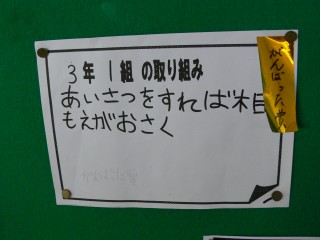 3年 1組 の取り組み
あいさつをすれば木目
もえがおさく
がんばったで賞